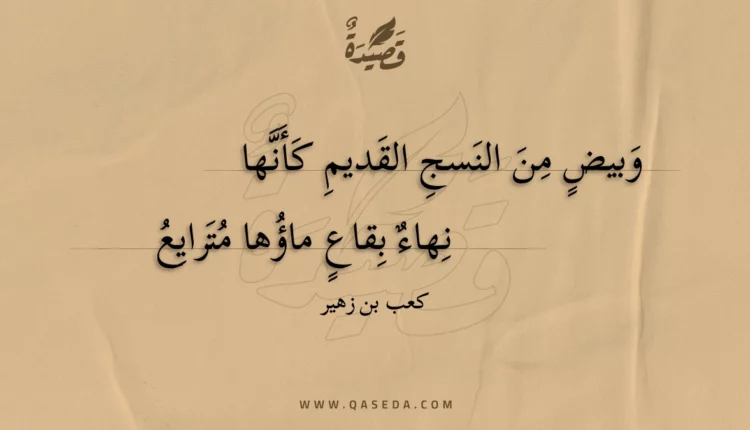 قَصِيْدَةٌ
وَبيضٍ مِنَ النَسجِ القَديمِ كَأَنَّها
نِهاءٌ بِقاعٍ ماؤُها مُتَرايِعُ
كعب بن زهير
WWW.QASEDA.COM